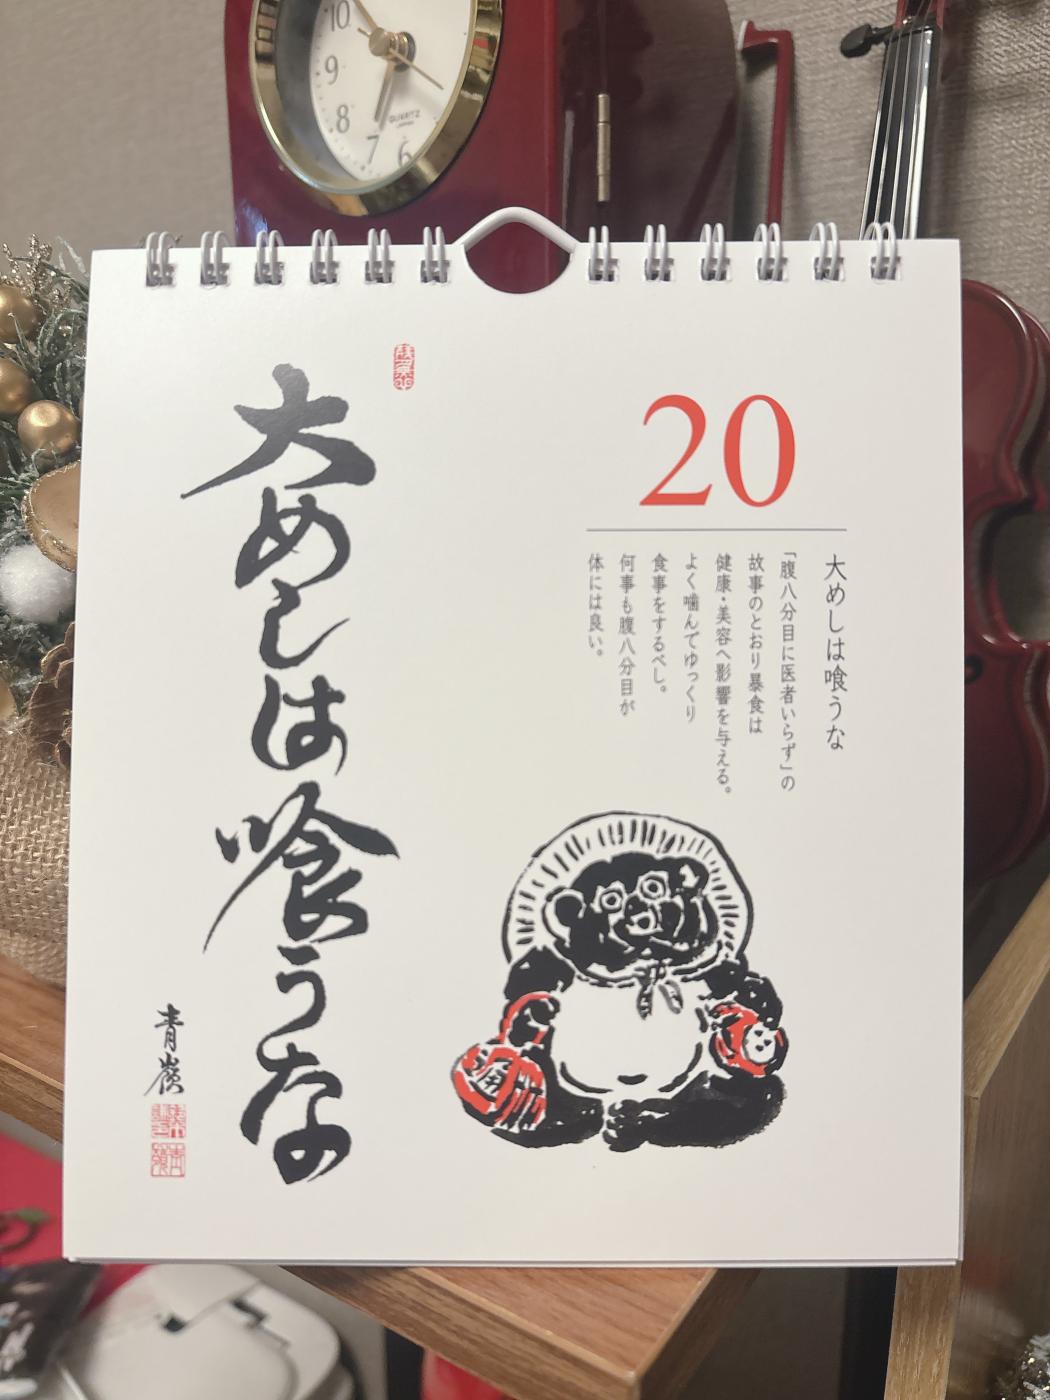 10
9
8
7
6
QUARTZ
JAPAN
20
大めしは喰うな
「腹八分目に医者いらず」の
故事のとおり暴食は
健康・美容へ影響を与える。
よく噛んでゆっくり
食事をするべし。
何事も腹八分目が
体には良い。
大めしは喰うな
青嶺
通